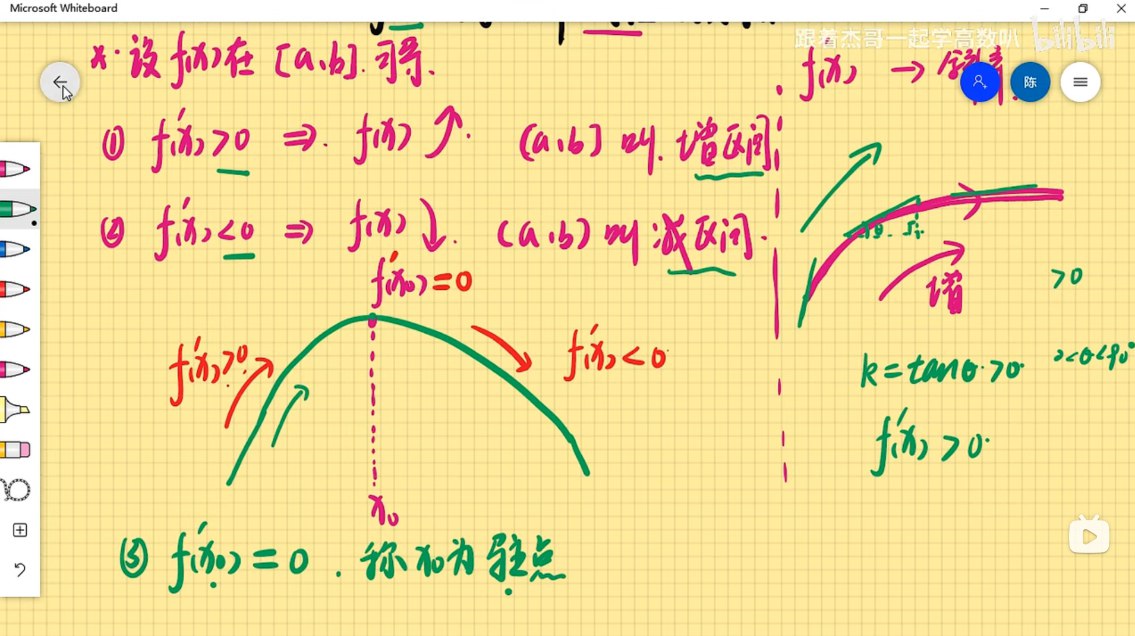 Microsoft Whiteboard
跟着杰哥一起学高数叭 bilibili
* 设 f(x) 在 [a,b] 可导.
① f'(x)>0 ⇒ f(x) ↗. (a,b] 叫 增区间
② f'(x)<0 ⇒ f(x) ↓. (a,b) 叫 减区间.
f'(x₀)=0
f'(x)>0
f'(x)<0
x₀
③ f'(x₀)=0. 称 x₀ 为 驻点
f(x) →
陈
增
>0
k=tanθ>0
<θ<90°
f'(x)>0